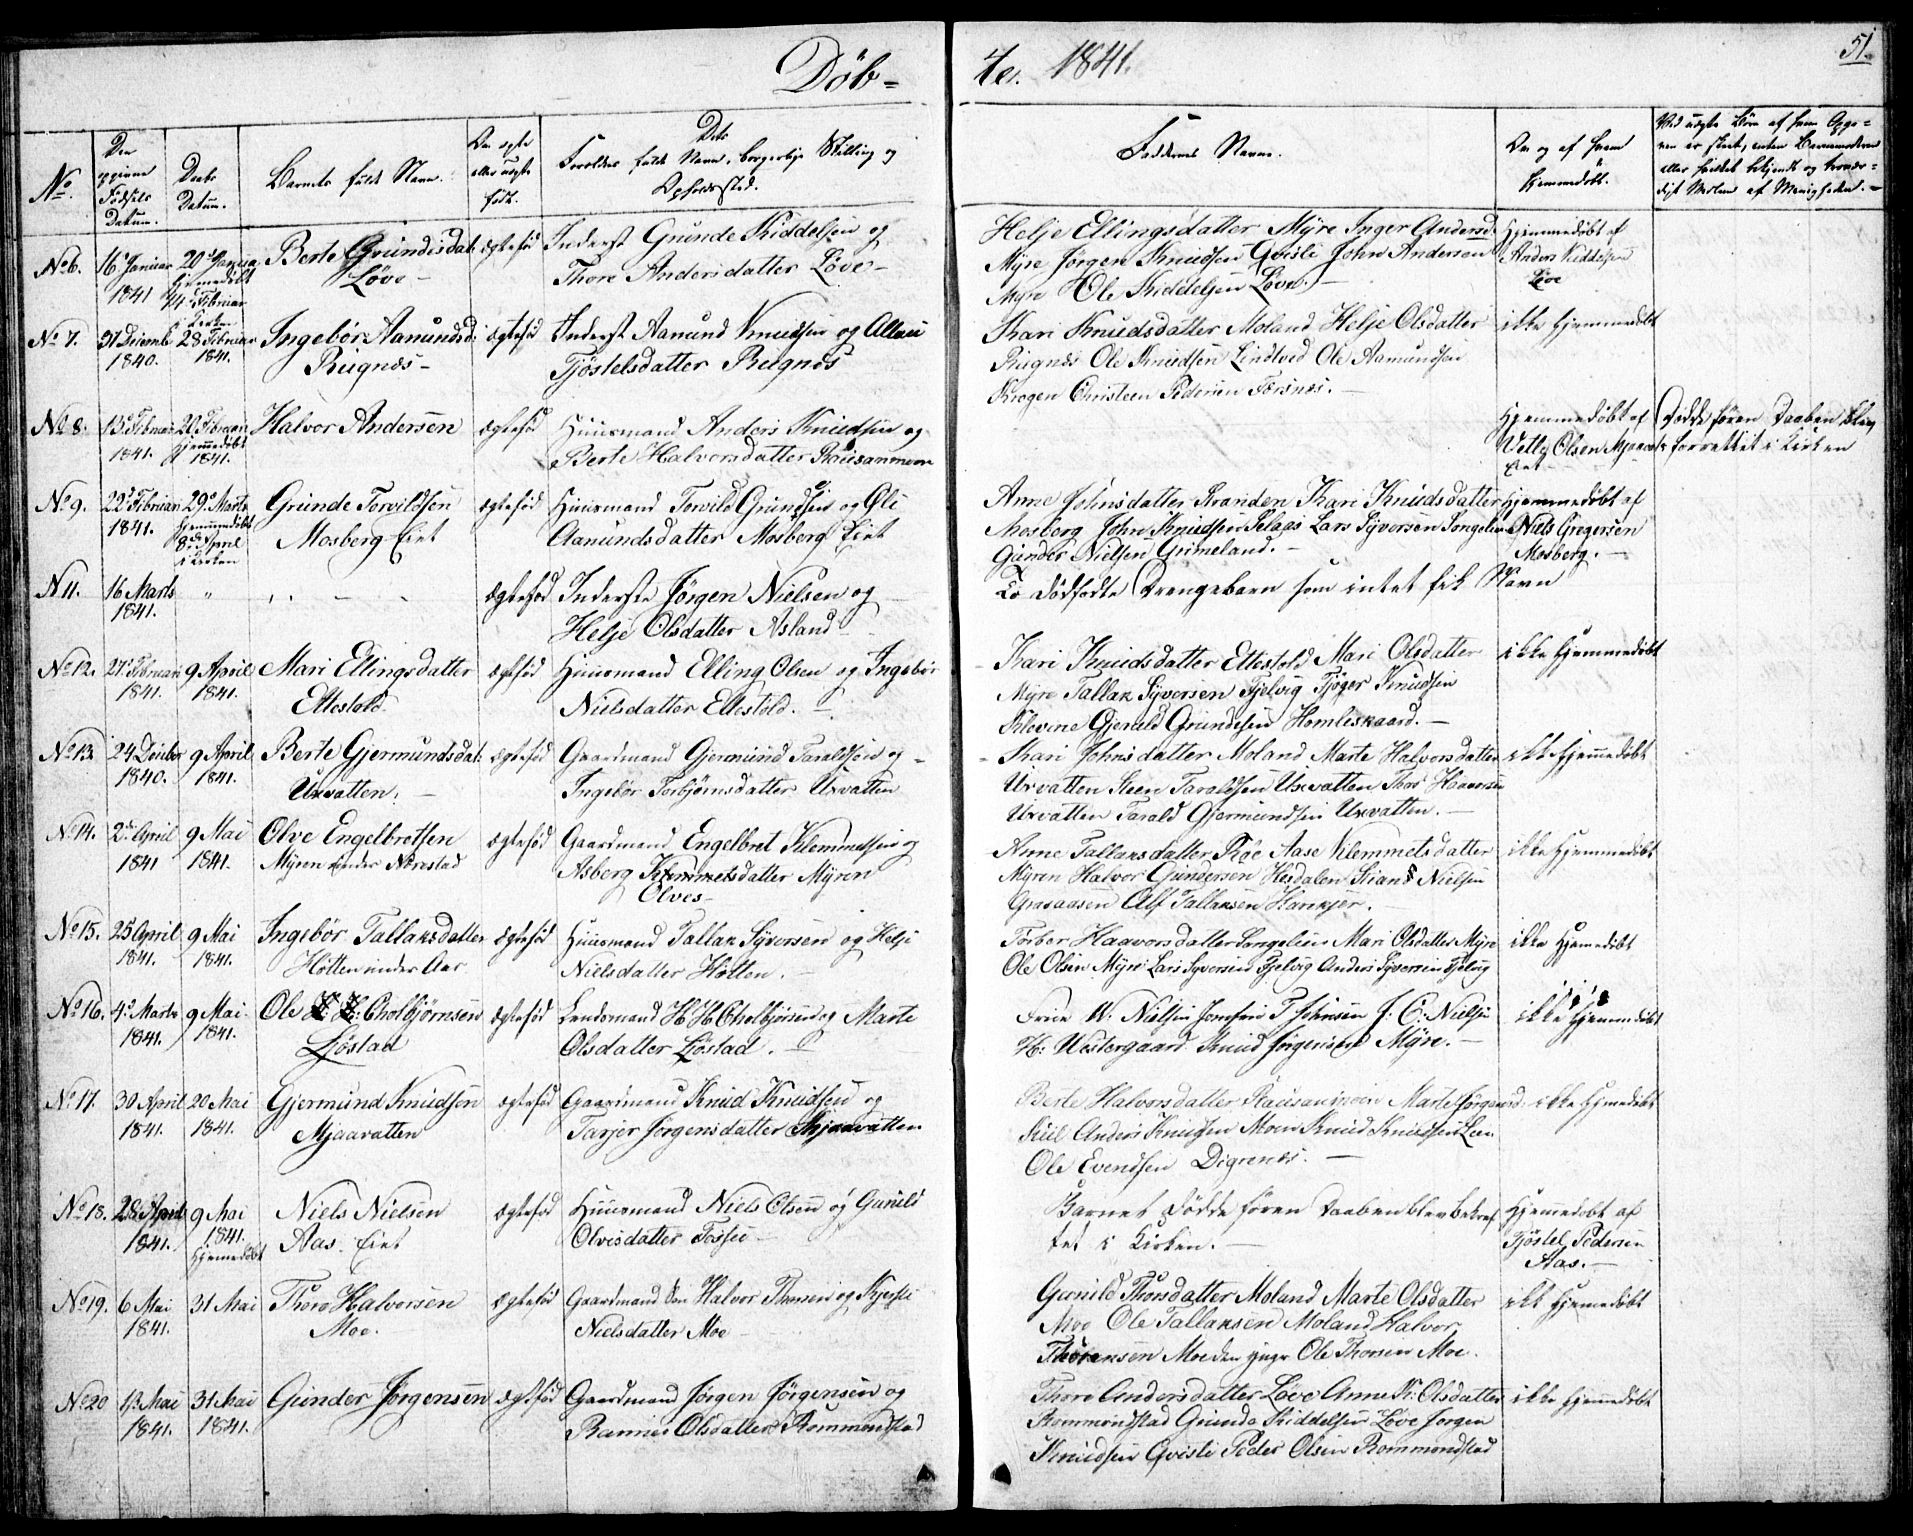 Døb=
te. 1841.
51.
No.
Den
Fødsels
Datum.
Daabs
Datum.
Barnets fulde Navn.
Om ægte
eller uægte
født.
Forældres fulde Navn, borgerlige Stilling og
Opholdssted.
Faddernes Navne.
Om og af hvem
hjemmedøbt.
No 6.
16 Januar
1841
20de Januar
hjemmedøbt
14 Februar
i Kirken
Berte Grundesdat:
Løve
ægtefød
Inderst Grunde Kiddelsen og
Thore Andersdatter Løve
Helje Ellingsdatter Myre Inger Andersd.
Myre Jørgen Knudsen Qvisli John Andersen
Myre Ole Kiddelsen Løve.
Hjemmedøbt af
Anders Kiddelsen
Løve
No 7.
31 Decemb
1840.
28 Februar
1841.
Ingebør Aamundsd:
Rugnes
ægtefød
Inderst Aamund Knudsen og
Tjøstelsdatter Rugnes
Kari Knudsdatter Moland Helje Olsdatter
Rugnes Ole Knudsen Lindtved Ole Aamundsen
Krogen Christen Pedersen Torsnes.
ikke hjemmedøbt
No 8.
13 Februar
1841.
Februar
hjemmedøbt
1841.
Halvor Andersen
ægtefød
Huusmand Anders Knudsen og
Berte Halvorsdatter
Hjemmedøbt af
Vetly Olsen
Eiet
Døde føren Daaben blev
forrettet i Kirken
No 9.
22de Februar
1841.
29de Marts
hjemmedøbt
8de April
i Kirken
Grunde Torvildsen
Mosberg Eiet
ægtefød
Huusmand Torvild Grundesen og
Aanundsdatter Mosberg Eiet
Anne Johnsdatter Stranden Kari Knudsdatter
Mosberg John Knudsen Selaas Lars Syversen Songelien
Gunder Nielsen Grimeland.
Hjemmedøbt af
Niels Gregersen
Mosberg.
N 11.
16 Marts
1841.
ægtefød
Inderste Jørgen Nielsen og
Helje Olsdatter Asland
To dødfødte Drengebarn som intet fik Navn
No 12.
27 Februari
1841.
9 April
1841.
Mari Ellingsdatter
Ettestøl
ægtefød
Huusmand Elling Olsen og Ingebør
Nielsdatter Ettestøl.
Kari Knudsdatter Ettestøl Mari Olsdatter
Myre Tallak Syversen Fjelvig Tjøger Knudsen
Klevene Gjerald Grundesen Homliskaard.
ikke hjemmedøbt
No 13.
24 Dcmbr
1840.
9 April
1841.
Berte Gjermundsdat:
Urvatten.
ægtefød
Gaardmand Gjermund Taraldsen og
Ingebør Torbjørnsdatter Urvatten
Kari Johnsdatter Moland Marte Halvorsdatter
Urvatten Steen Taraldsen Urvatten Thor Haavorsen
Urvatten Tarald Gjermundsen Urvatten.
ikke hjemmedøbt
No 14.
2 April
1841
9 Mai
1841.
Olve Engelbretsen
Myren under Nørestad
ægtefød
Gaardmand Engelbret Klemmetsen og
Asberg Klemmetsdatter Myren
Olves
Anne Tallaksdatter Røe Aase Klemmetsdatter
Myren Halvor Gundersen Hesdalen Nielsen
Graaaasen Alf Tallaksen Harkjer.
ikke hjemmedøbt
No 15.
25 April
1841.
9 Mai
1841.
Ingebør Tallaksdatter
Hotten under Aas
ægtefød
Huusmand Tallak Syversen og Helje
Nielsdatter Hotten.
Torber Haavorsdatter Songelien Mari Olsdatter Myre
Ole Olsen Myre Lars Syversen Fjelvig Anders Syversen Fjelvig
ikke Hjemedøbt
No 16.
4de Marts
1841.
9 Mai
1841.
Ole H: Tholbjørnsen
Ljøstad
ægtefød
Lendsmand H H Tholbjørnsen og Marte
Olsdatter Ljøstad.
W. Nielsen Jomfrue T Johnsen J: C: Nielsen
H: Westergaard Knud Jørgensen Myre.
ikke Hjemmedøbt
No 17.
30 April
1841.
20 Mai
1841.
Gjermund Knudsen
Mjaavatten
ægtefød
Gaardmand Knud Knudsen og
Tarjer Jørgensdatter Mjaavatten
Berte Halvorsdatter Marte Jørgensd
Kiil Anders Knudsen Moen Knud Knudsen Lien
Ole Evendsen Digrenes.
ikke Hjemedøbt
No 18.
28 April
1841.
9 Mai
1841.
Hjemedøbt
Niels Nielsen
Aas. Eiet
ægtefød
Huusmand Niels Olsen og Gunild
Olvisdatter Fosse
Barnet Døde føren Daaben blev bekræf
tet i Kirken.
Hjemmedøbt af
Tjøstel Pedersen
Aas.
No 19.
6 Mai
1841.
31 Mai
Thore Halvorsen
Moe.
ægtefød
Gaardmand Søn Halvor Thoresen og Kjerste
Nielsdatter Moe
Gunild Thorsdatter Moland Marte Olsdatter
Moe Ole Tallaksen Moland Halvor
Thorensen Moe den yngr Ole Thorsen Moe.
ikke hjemmedøbt
No 20
Mai
1841.
31 Mai
1841.
Gunder Jørgensen
ægtefød
Gaardmand Jørgen Jørgensen og
Olsdatter Rommondstad
Thore Andersdatter Løve Anne K: Olsdatter
Rommondstad Grunde Kiddelsen Løve Jørgen
Knudsen Qvisli Peder Olsen Rommondstad
ikke hjemmedøbt